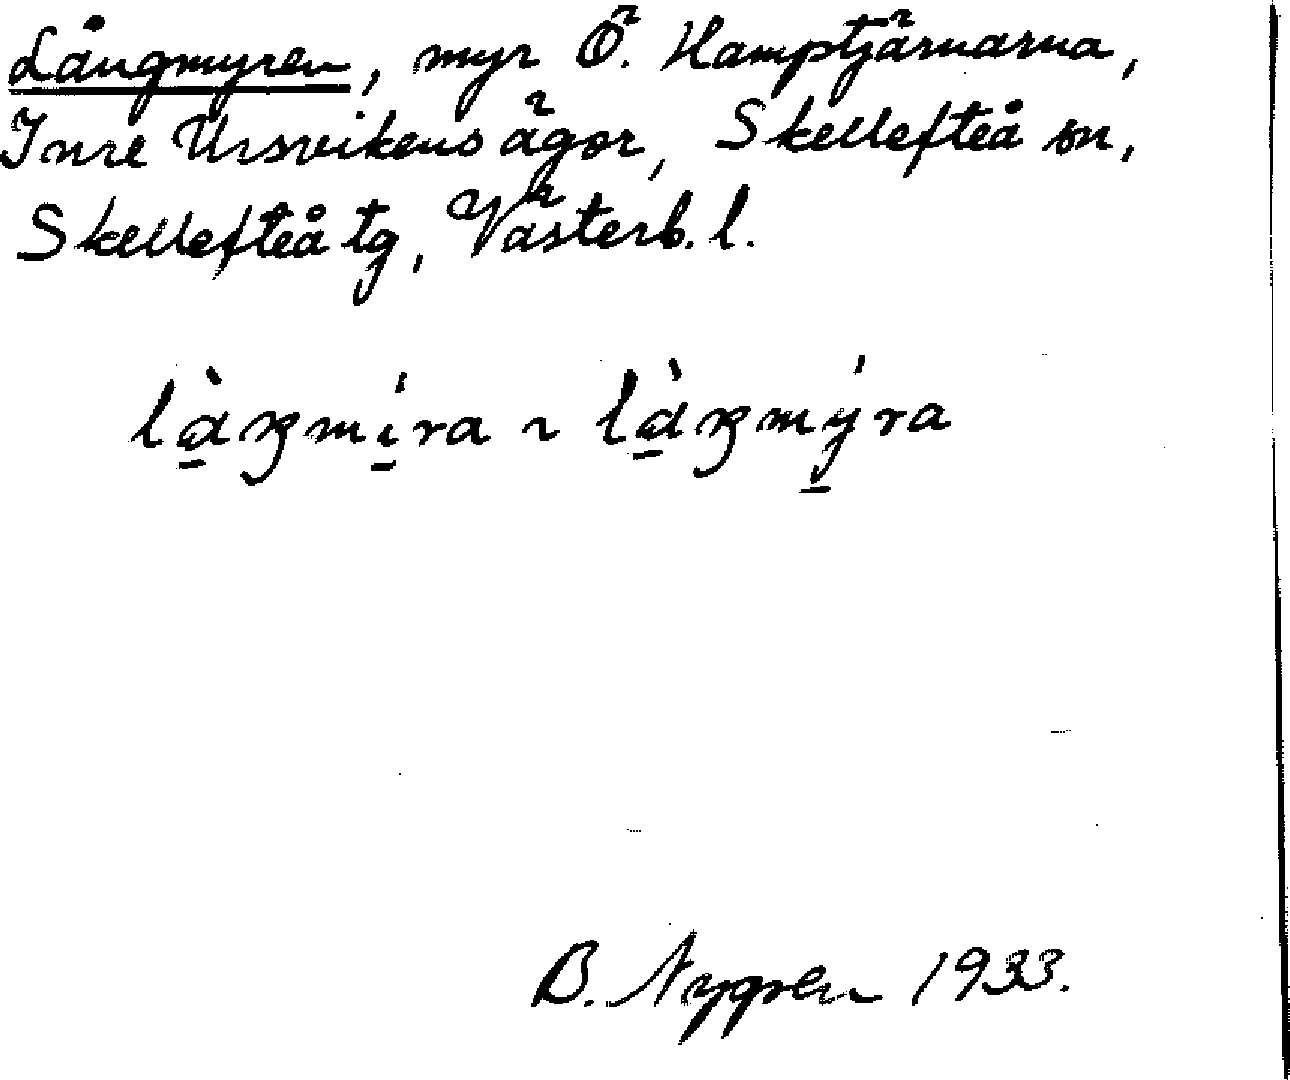 Långmyren, myr Ö. Hamptjärnarna,
Inre Ursvikens ägor, Skellefteå sn,
Skellefteå tg, Västerb. l.
là̱ŋmí̱ra ~ là̱ŋmý̱ra
B. Nygren 1933.